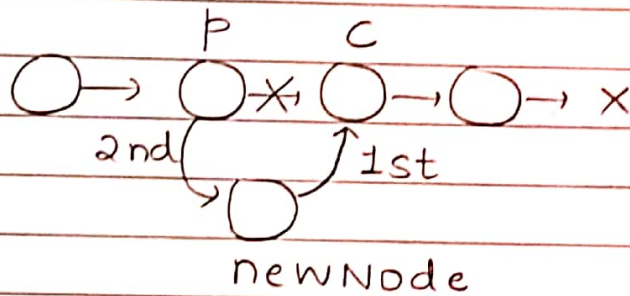 P C
X X
2nd 1st
newNode